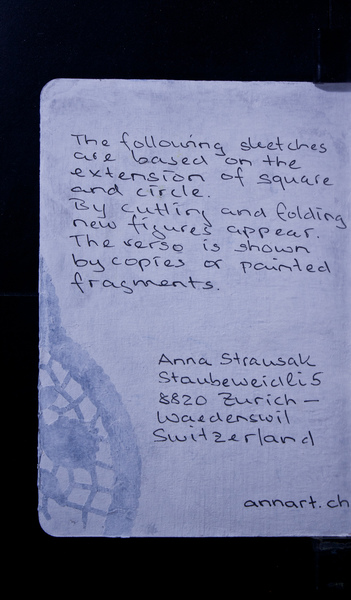 The following sketches
are based on the
extension of square
and circle.
By cutting and folding
new figures appear.
The verso is shown
by copies or painted
fragments.
Anna Strausak
Staubeweidli 5
8820 Zurich –
Waedenswil
Switzerland
annart.ch